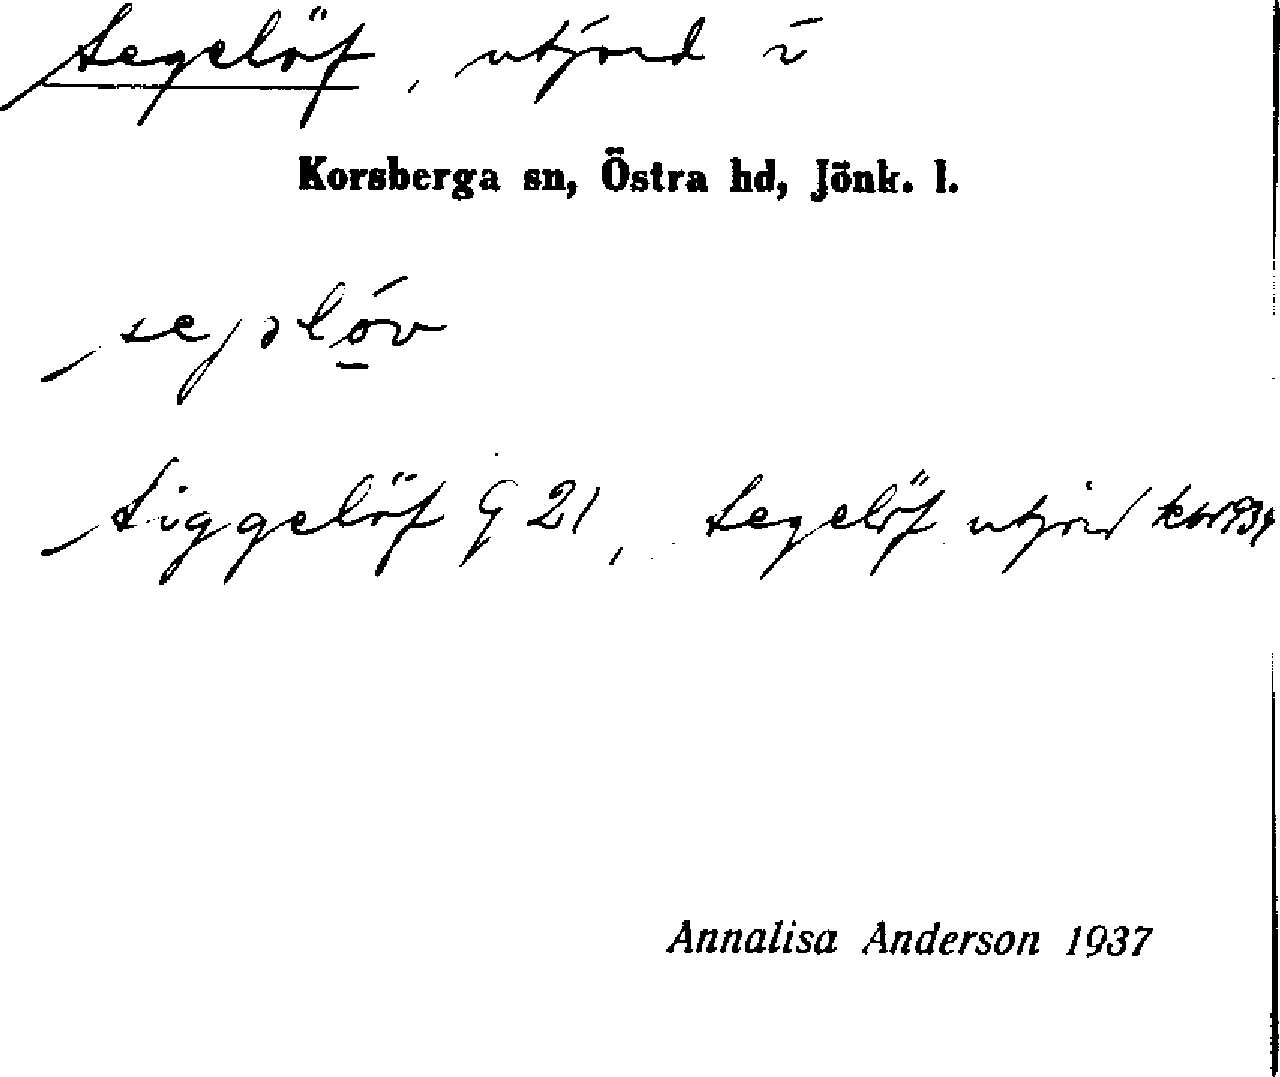 Segelöf, utjord i
Korsberga sn, Östra hd, Jönk. l.
sejəló̱v
Siggelöf G 21, Segelöf utjord
Annalisa Anderson 1937